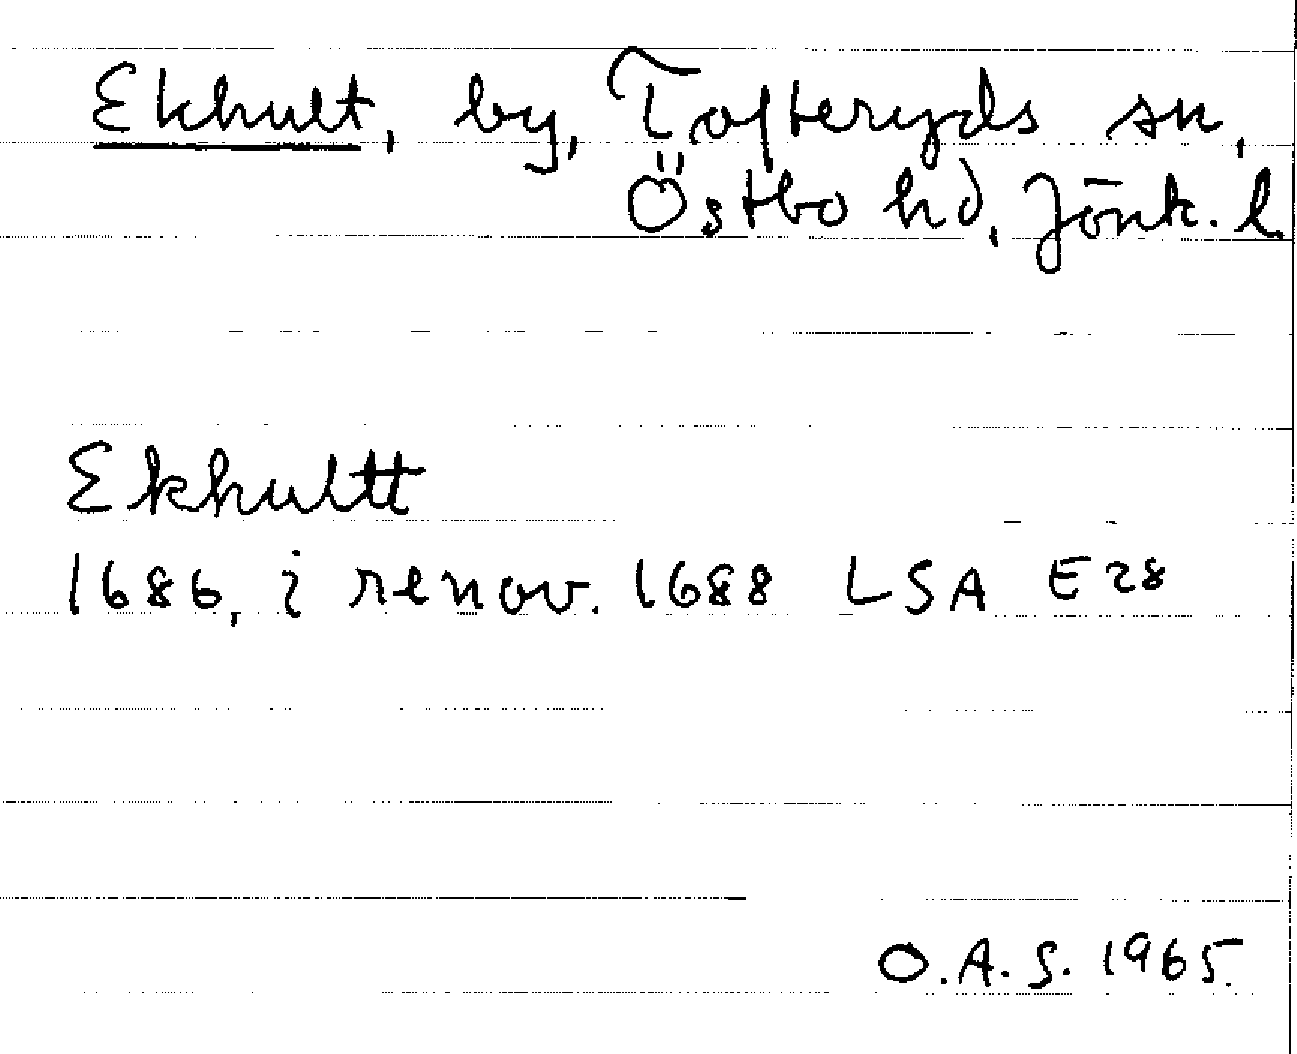 Ekhult, by, Tofteryds sn,
Östbo hd, Jönk. l.
Ekhultt
1686, i renov. 1688 LSA E28
O.A.S. 1965.